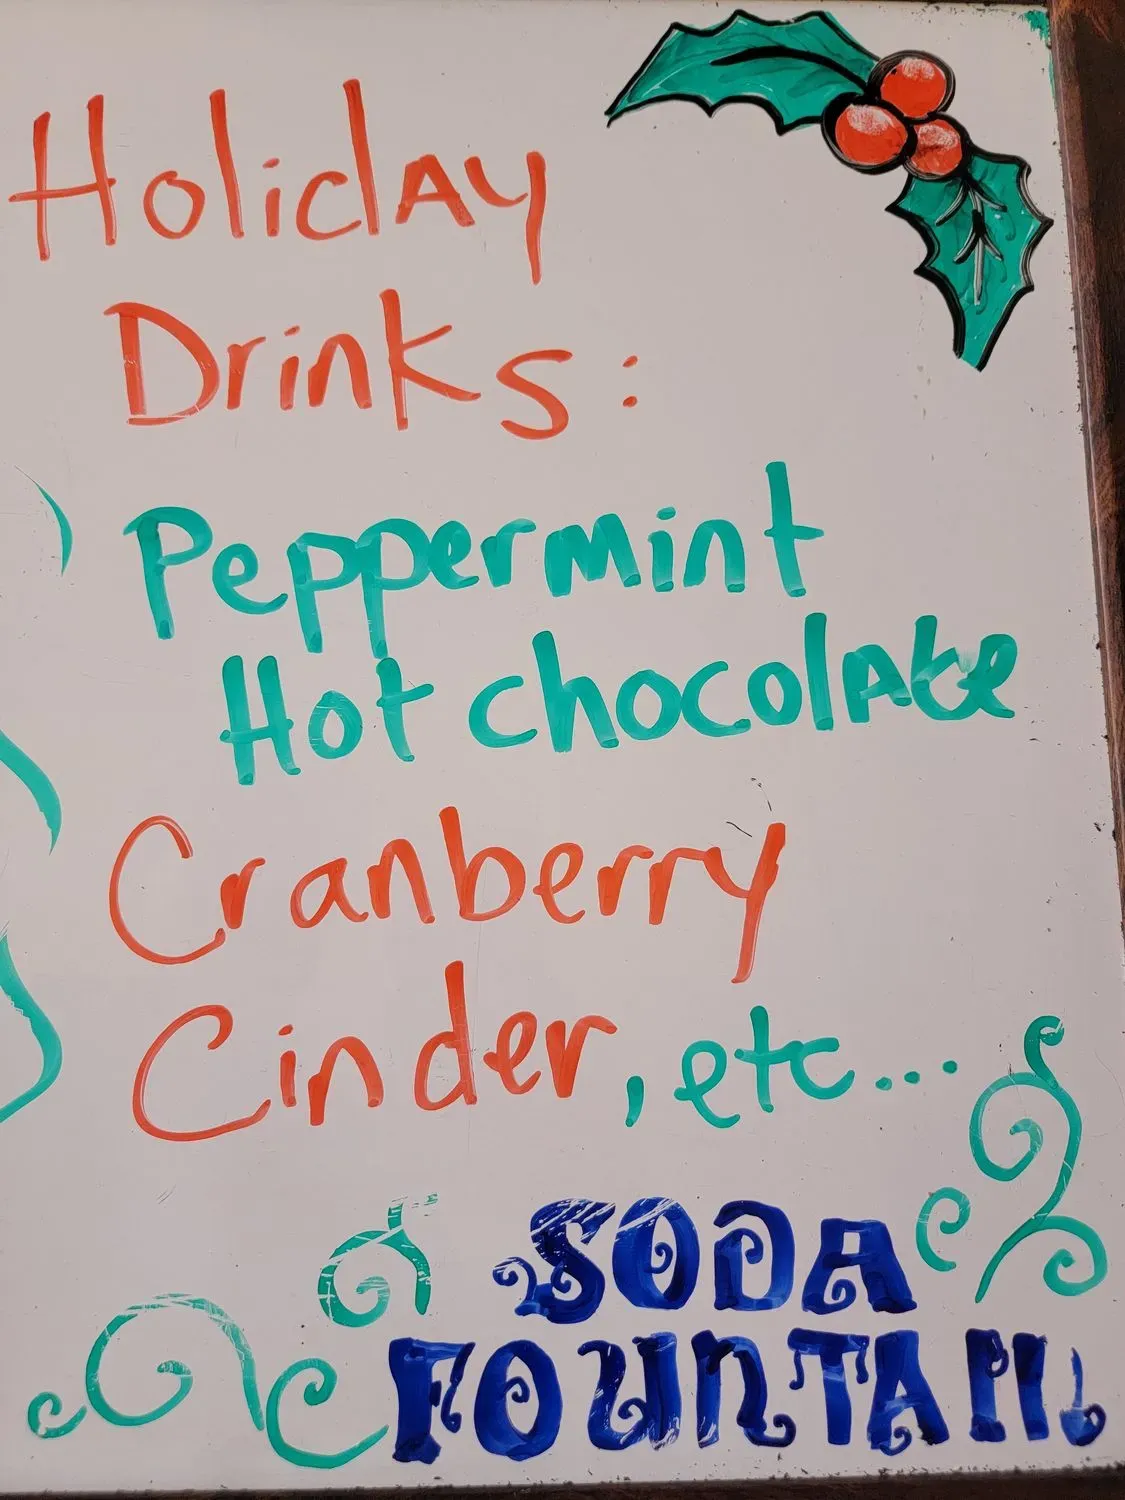 Holiday
Drinks:
Peppermint
Hot chocolate
Cranberry
Cinder, etc...
SODA
FOUNTAIN